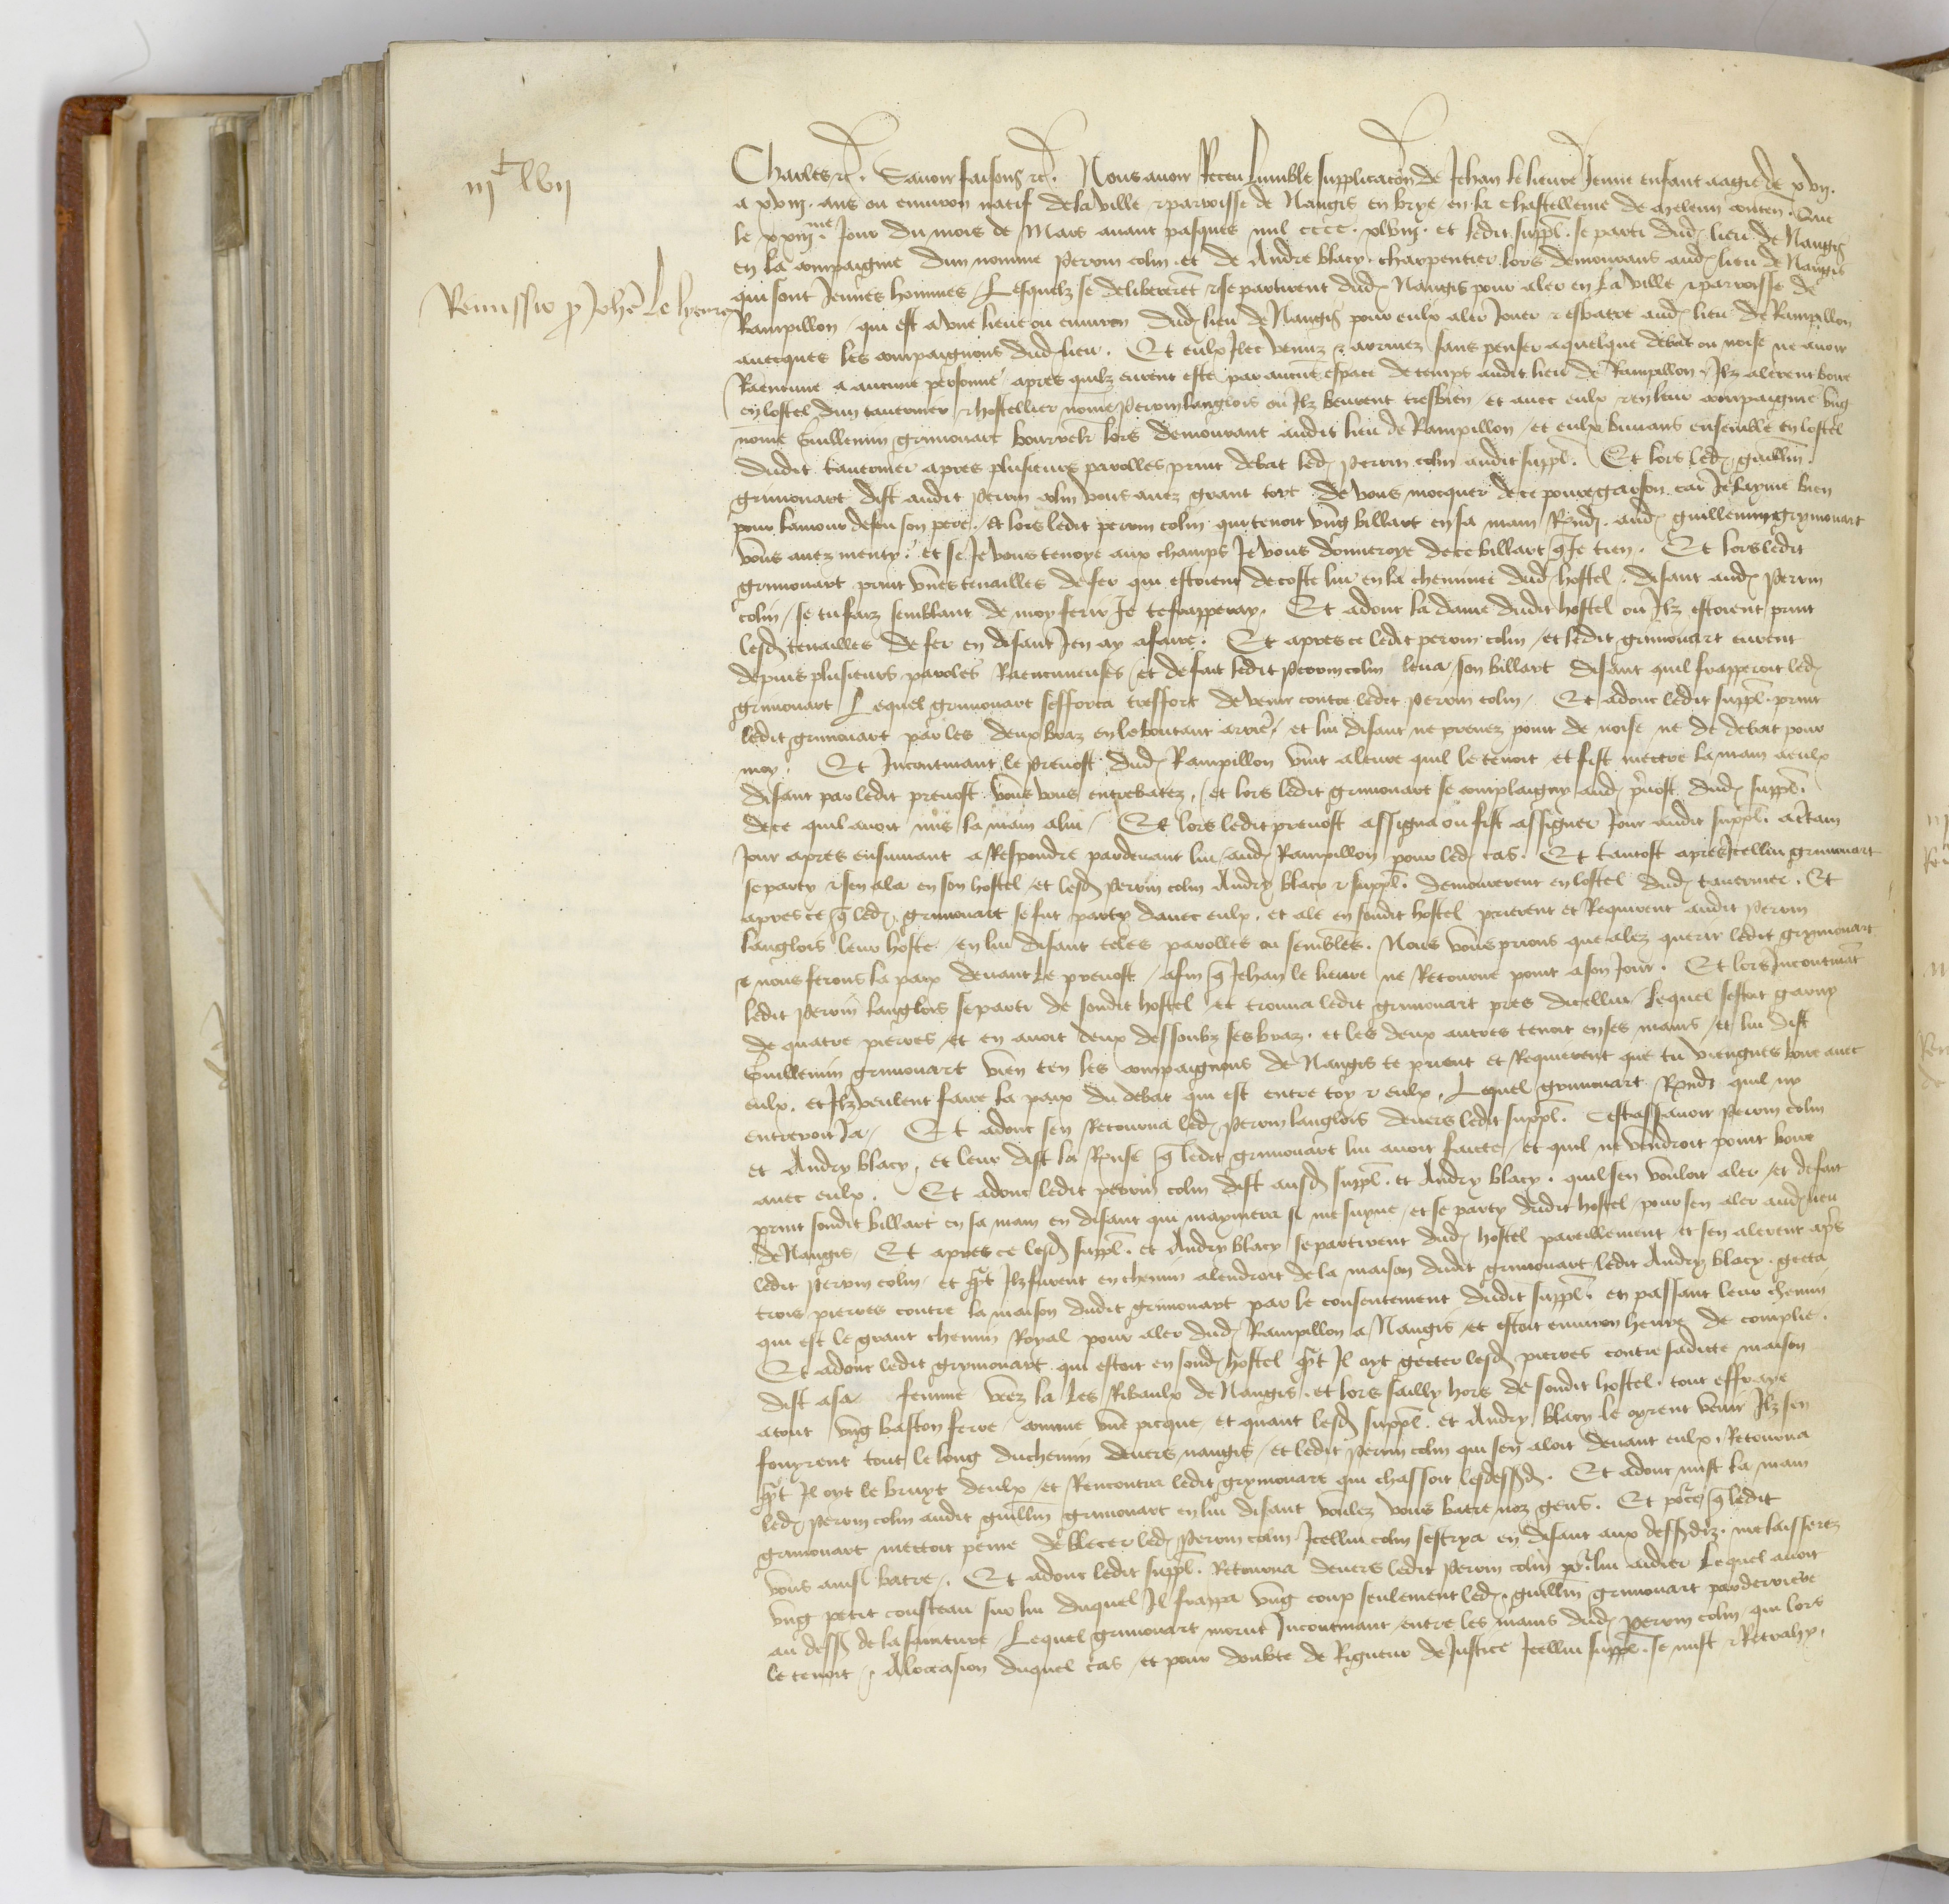 iijᶜ lvij
Remissio p Johe Le lyeure
Charles etc. Sauoir faisons etc. Nous auoir Receu lumble supplicacon de Jehan le lieure Jeune enfant aagie de xvij.
a xviij. ans ou enuiron natif de la ville & parroisse de Nangis en brye en la chastellenie de meleun conten. Que
le xxiiijme Jour du mois de Mars auant pasques mil cccc. xlviij. et ledit suppl. se parti dud lieu de Nangis
en la compaignie dun nomme Perrin colin et de Andre blacy charpentier lors demourans aud lieu de Nangis
qui sont Jeunes hommes / Lesquelz se delibererent & se partirent dud Nangis pour aler en la ville & parroisse de
Rampillon / qui est a vne lieue ou enuiron dud lieu de Nangis pour eulx aler Jouer & esbatre aud lieu de Rampillon
auecques les compaignons dud lieu. Et eulx Ilec venuz & arriuez sans penser a quelque debat ou noise ne auoir
Raencune a aucune personne apres quilz eurent este par aucun espace de temps audit lieu de Rampillon Ilz alerent boire
en lostel dun tauernier & hostellier nome Perrin langlois ou Ilz beurent tresbien et auec eulx & en leur compaignie vng
nome Guillemin grimouart lors demourant audit lieu de Rampillon / et eulx buuans ensemble en lostel
dudit tauernier apres plusieurs parolles print debat led Perrin colin audit suppl. Et lors led guillin
grimouart dist audit Perrin colin vous auez grant tort de vous mocquer de ce poure garson car Je layme bien
pour lamour de feu son pere. / Et lors ledit perrin colin qui tenoit vng billart en sa main Rond. aud guillemin grymouart
vous auez menty. et se Je vous tenoye aux champs Je vous donneroye de ce billart q Je tien. Et lors ledit
grimouart print vnes tenailles de fer qui estoient decoste lui en la cheminee dud hostel. disant aud Perrin
colin / se tu faiz semblant de moy ferir Je te frapperay. Et adonc la dame dudit hostel ou Ilz estoient print
lesd tenailles de fer en disant Jen ay afaire. Et apres ce ledit perrin colin / et ledit grimouart eurent
depuis plusieurs paroles Raencuneuses / et de fait ledit Perrin colin leua son billart disant quil frapperoit led
grimouart / Lequel grimouart sefforca tresfort de venir contre ledit Perrin colin / Et adonc ledit suppl. print
ledit grimouart par les deux braz en le boutant arrie / et lui disant ne prenez point de noise ne de debat pour
moy. Et Incontinant le Preuost dud Rampillon vint a leure quil le tenoit et fist mectre la main a eulx
disant par ledit preuost vous vous entrebatez, / et lors ledit grimouart se complaigny aud puost dud suppl.
de ce quil auoit mis la main a lui / Et lors ledit preuost assigna ou fist assigner Jour audit suppl. a ctain
Jour apres ensuiuant a Respondre pardeuant lui / aud Rampillon pour led cas. Et tantost apres Icellui grimouart
se party & sen ala en son hostel / et lesd Perrin colin Andry blacy & suppl. demourerent en lostel dud tauernier. Et
apres ce q led grimouart se fut party dauec eulx. et ale en sondit hostel prierent et Requirent audit Perrin
langlois leur hoste / en lui disant teles parolles ou sembles. Nous vous prions que alez querir ledit grymouart
et nous ferons la paix deuant le preuost / afin q Jehan le lieure ne Retourne point a son Jour. Et lors Incontinat
ledit Perrin langlois se parti de sondit hostel et trouua ledit grimouart pres dicellui / lequel sestoit garny
de quatre pierres / et en auoit deux dessoubz ses braz. et les deux autres tenoit en ses mains / et lui dist
Guillemin grimouart vien ten les compaignons de Nangis te prient et Requierent que tu viengnes boire auec
eulx. et Ilz veulent faire la paix du debat qui est entre toy & eulx. Lequel grimouart Rond quil ny
entreroit Ja / Et adonc sen Retourna led Perrin langlois deuers ledit suppl. Cestassauoir Perrin colin
et Andry blacy, et leur dist la Ronse q ledit grimouart lui auoit faicte / et quil ne vendroit point boire
auec eulx. Et adonc ledit perrin colin dist ausd suppl. et Andry blacy. quil sen vouloit aler / et de fait
print sondit billart en sa main en disant qui maymera si me suyue / et se party dudit hostel / pour sen aler aud lieu
de Nangis / Et apres ce lesd suppl. et Andry blacy se partirent dud hostel pareillement et sen alerent aps
ledit Perrin colin / et qt Ilz furent en chemin alendroit de la maison dudit grimouart / ledit Andry blacy. gecta
trois pierres contre la maison dudit grimouart par le consentement dudit suppl. en passant leur chemin
qui est le grant chemin Royal pour aler dud Rampillon a Nangis et estoit enuiron heure de complie.
Et adonc ledit grymouart qui estoit en sond hostel qt Il oyt gecter lesd pierres contre sadicte maison
dist a sa femme veez la les Ribaulx de Nangis. et lors sailly hors de sondit hostel. tout effraye
atout vng baston ferre comme vne picque et quant lesd suppl. et Andry blacy le oyrent venir Ilz sen
fouyrent tout le long du chemin deuers nangis / et ledit Perrin colin qui sen aloit deuant eulx. Retourna
qt Il oyt le bruyt deulx / et Rencontra ledit grymouart qui chassoit lesdessd. Et adonc mist la main
led Perrin colin audit guillin grimouart en lui disant voulez vous batre noz gens. Et pource q ledit
grimouart mectoit peine de blecer led Perrin colin Icellui colin sescrya en disant aux dessdiz. me laisserez
vous ainsi batre /. Et adonc ledit suppl. Retourna deuers ledit Perrin colin pr lui aidier lequel auoit
vng petit cousteau sur lui duquel Il frappa vng coup seulement led. guillin grimouart par derriere
au dess de la sainture / Lequel grimouart morut Incontinant entre les mains dud Perrin colin qui lors
le tenoit / Aloccasion duquel cas / et pour doubte de Rigueur de Justice Icellui suppl. se mist & Retrahy.